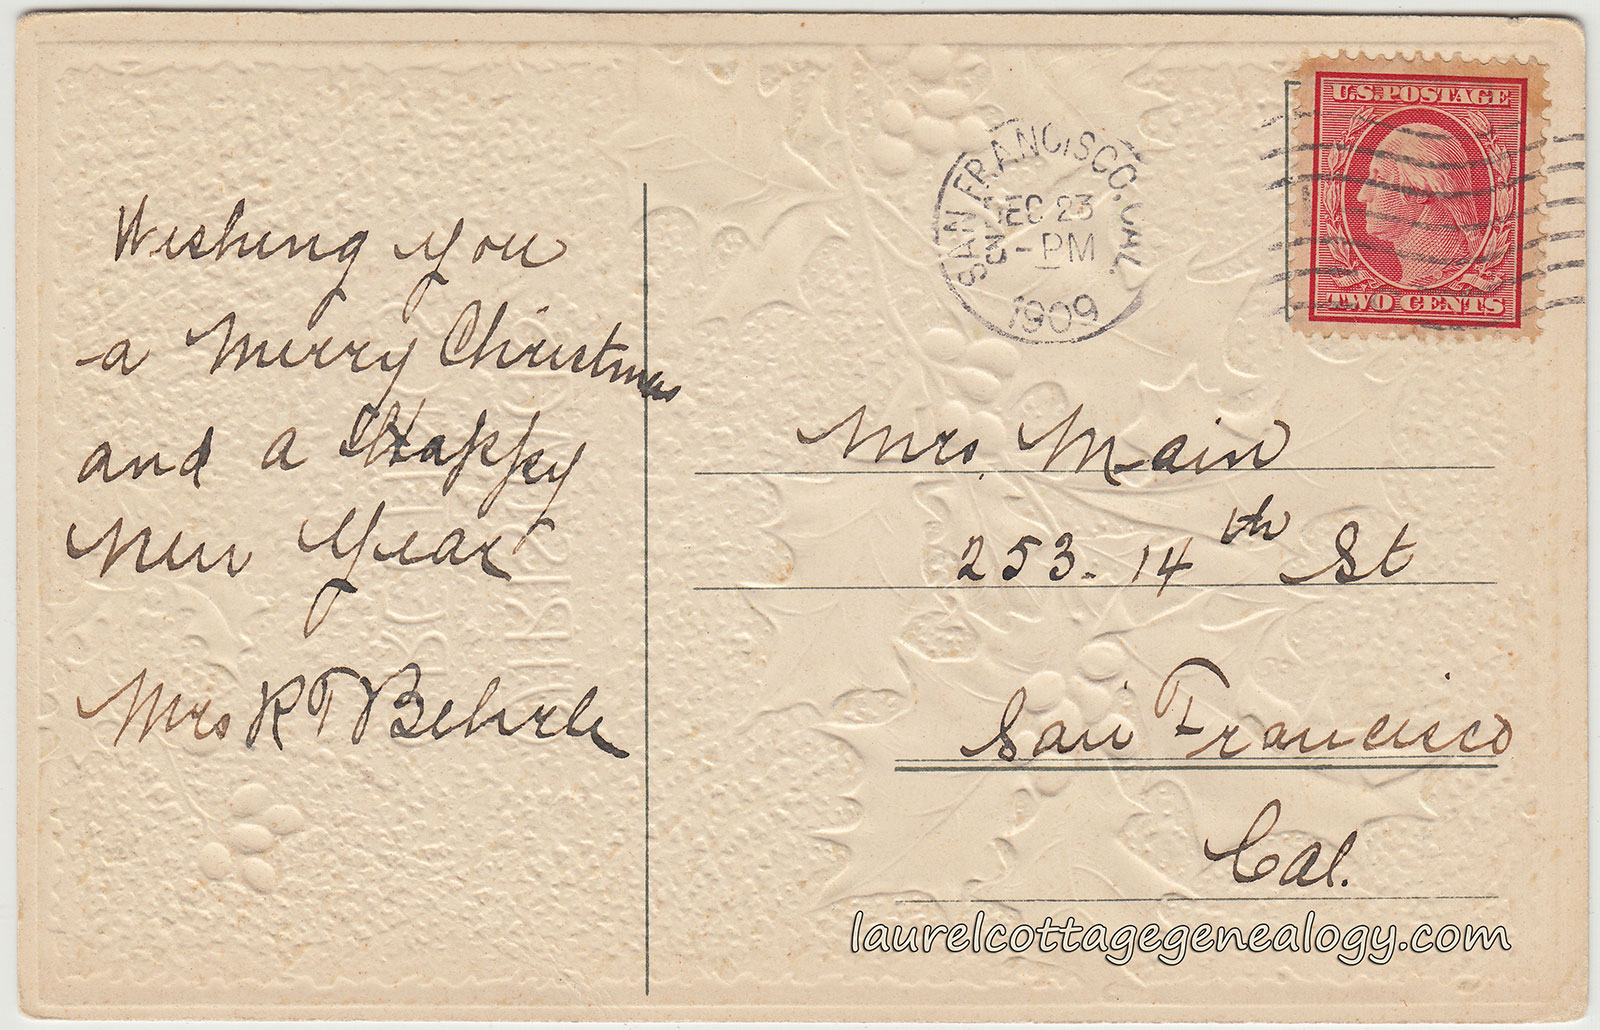 Wishing you
a Merry Christmas
and a Happy
New Year
Mrs R T Behrle
SAN FRANCISCO, CAL.
DEC 23
-PM
1909
U.S. POSTAGE
TWO CENTS
Mrs. Main
253-14th St
San Francisco
Cal.
laurelcottagegenealogy.com